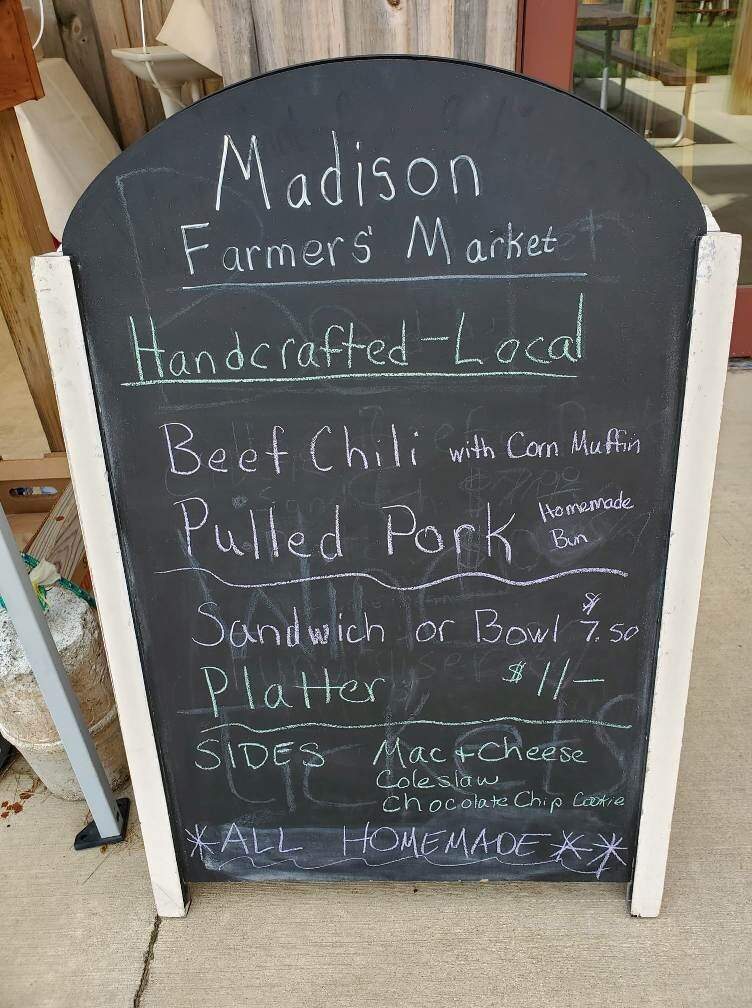 Madison
Farmers' Market
Handcrafted - Local
Beef Chili with Corn Muffin
Pulled Pork Homemade Bun
Sandwich or Bowl $7.50
Platter $11-
SIDES Mac + Cheese
Coleslaw
Chocolate Chip Cookie
*ALL HOMEMADE **